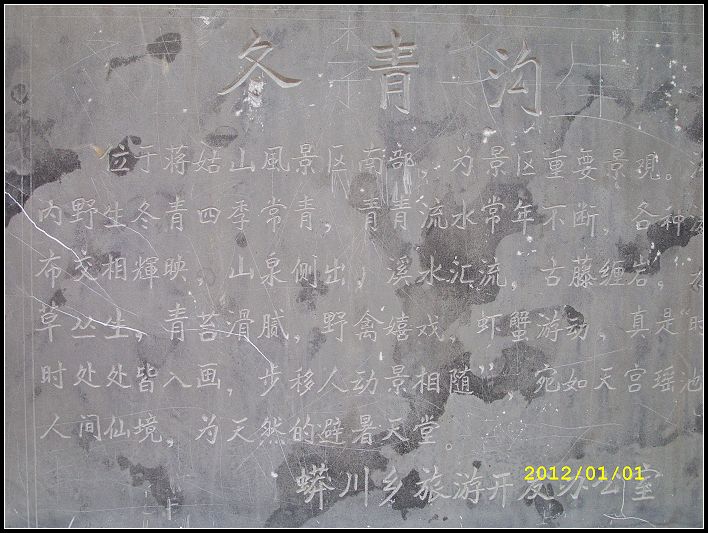 冬青沟
位于蒋姑山風景区南部，为景区重要景观。沟
内野生冬青四季常青，青青流水常年不断，各种
布交相輝映，山泉侧出，溪水汇流，古藤缠岩，
草丛生，青苔滑腻，野禽嬉戏，虾蟹游动。真是“时
时处处皆入画，步移人动景相随”，宛如天宫瑶池
人间仙境，为天然的避暑天堂。
蟒川乡旅游开发办公室
2012/01/01